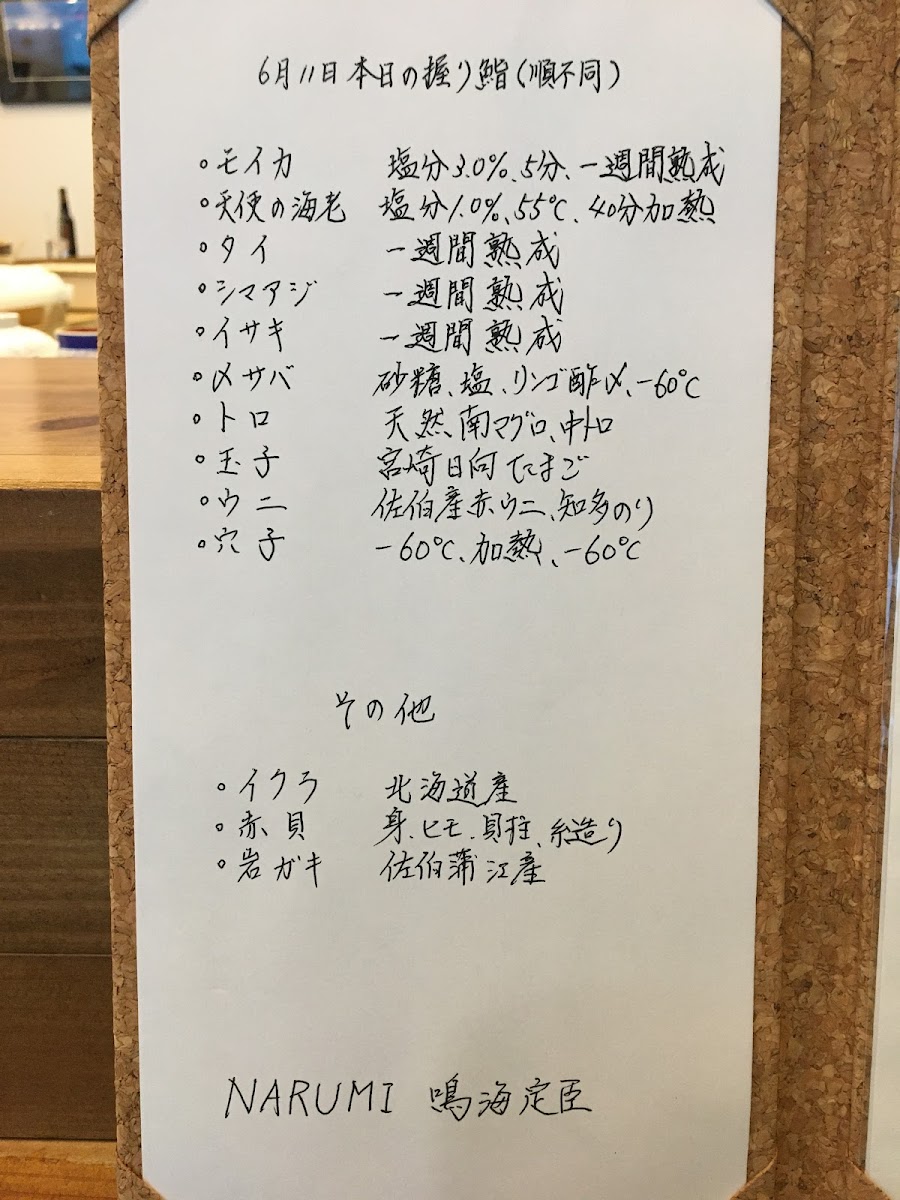 6月11日本日の握り鮨(順不同)
・モイカ 塩分3.0%、5分、一週間熟成
・天使の海老 塩分1.0%、55℃、40分加熱
・タイ 一週間熟成
・シマアジ 一週間熟成
・イサキ 一週間熟成
・〆サバ 砂糖、塩、リンゴ酢〆、-60℃
・トロ 天然、南マグロ、中トロ
・玉子 宮崎日向たまご
・ウニ 佐伯産赤ウニ、知多のり
・穴子 -60℃、加熱、-60℃
その他
・イクラ 北海道産
・赤貝 身、ヒモ、貝柱、糸造り
・岩ガキ 佐伯蒲江産
NARUMI 鳴海定臣